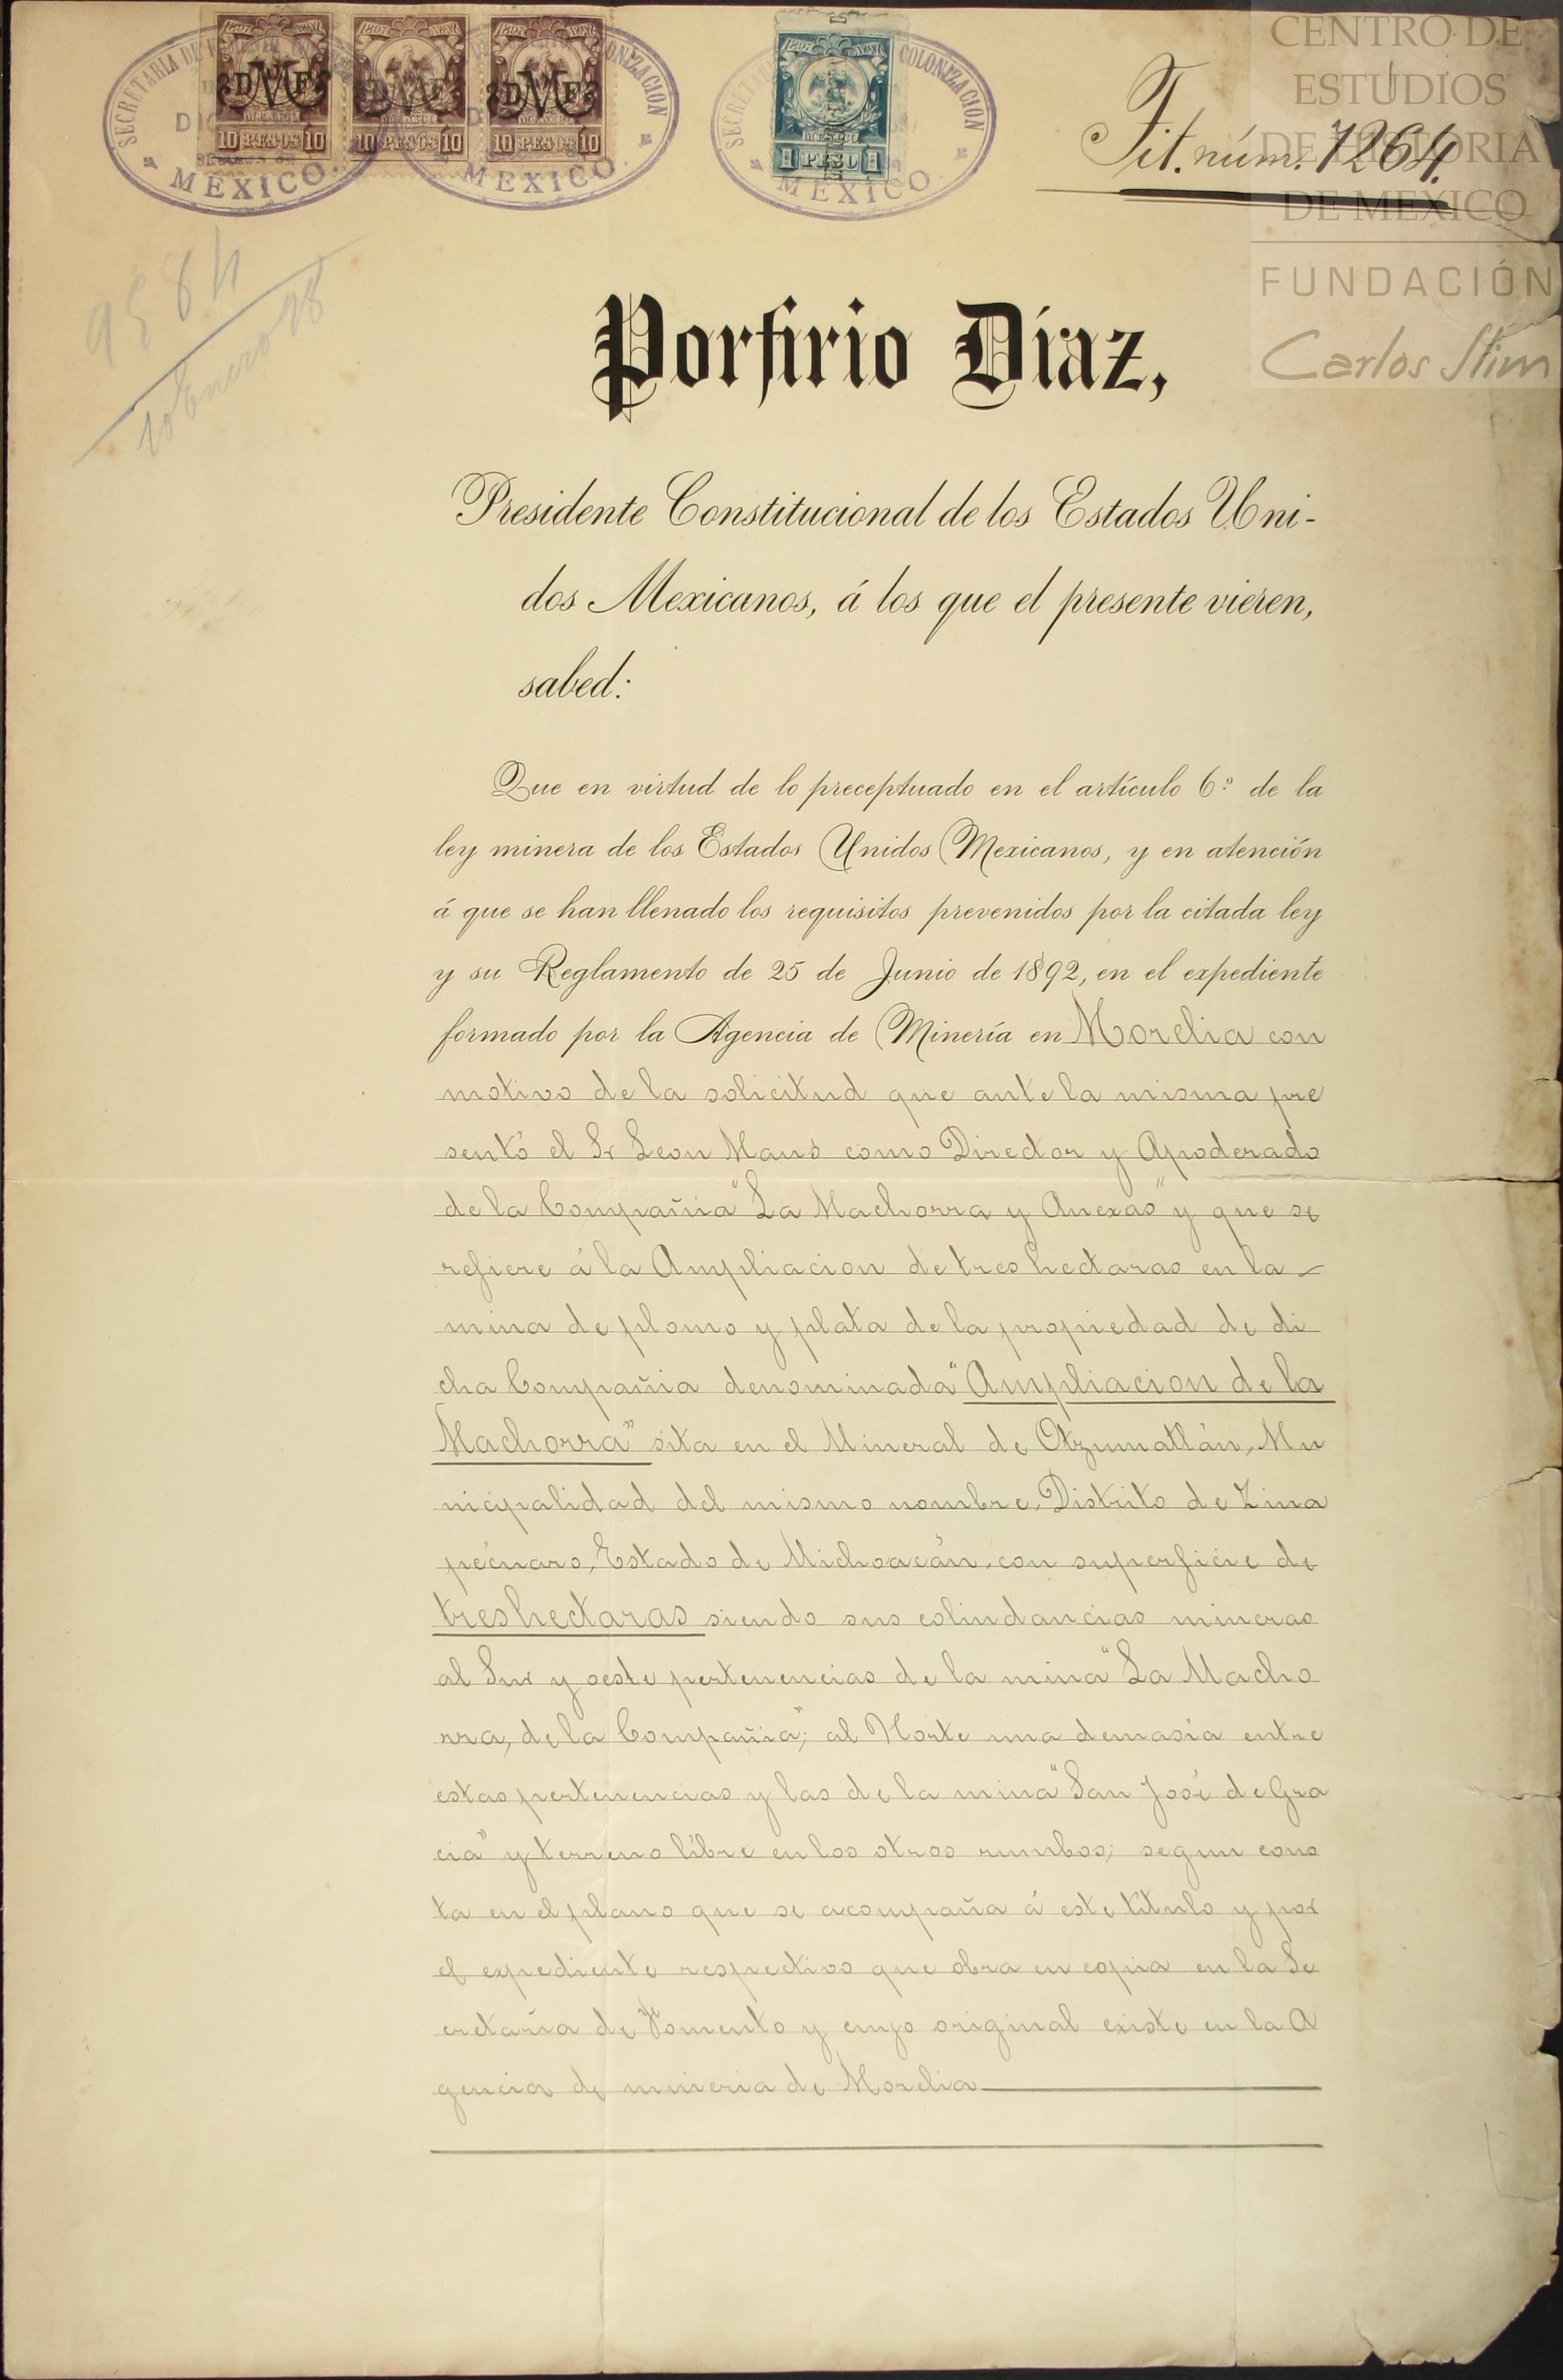 SECRETARIA DE FOMENTO COLONIZACION
MEXICO
MEXICO
10 PESOS 10
10 PESOS 10
10 PESOS 10
SECRETARIA COLONIZACION
1 PESO 1
MEXICO
Tit. núm. 7264.
CENTRO DE
ESTUDIOS
DE HISTORIA
DE MEXICO
FUNDACIÓN
Carlos Slim
10 Enero 98
Porfirio Díaz,
Presidente Constitucional de los Estados Uni-
dos Mexicanos, á los que el presente vieren,
sabed:
Que en virtud de lo preceptuado en el artículo 6º de la
ley minera de los Estados Unidos Mexicanos, y en atención
á que se han llenado los requisitos prevenidos por la citada ley
y su Reglamento de 25 de Junio de 1892, en el expediente
formado por la Agencia de Minería en Morelia con
motivo de la solicitud que ante la misma pre
sentó el Sr Leon Maus como Director y Apoderado
de la Compañia "La Machorra y Anexas" y que se
refiere á la Ampliacion de tres hectaras en la
mina de plomo y plata de la propiedad de di
cha Compañia denominada "Ampliacion de la
Machorra" sita en el Mineral de Otzumatlán, Mu
nicipalidad del mismo nombre, Distrito de Zina
pécuaro, Estado de Michoacán, con superficie de
tres hectaras siendo sus colindancias mineras
al Sur y oeste pertenencias de la mina "La Macho
rra, de la Compañia"; al Norte una demasía entre
estas pertenencias y las de la mina "San José de Gra
cia" y terreno líbre en los otros rumbos; segun cons
ta en el plano que se acompaña á este título y por
el expediente respectivo que obra en copia en la Se
cretaría de Fomento y cuyo original existe en la A
gencia de mineria de Morelia